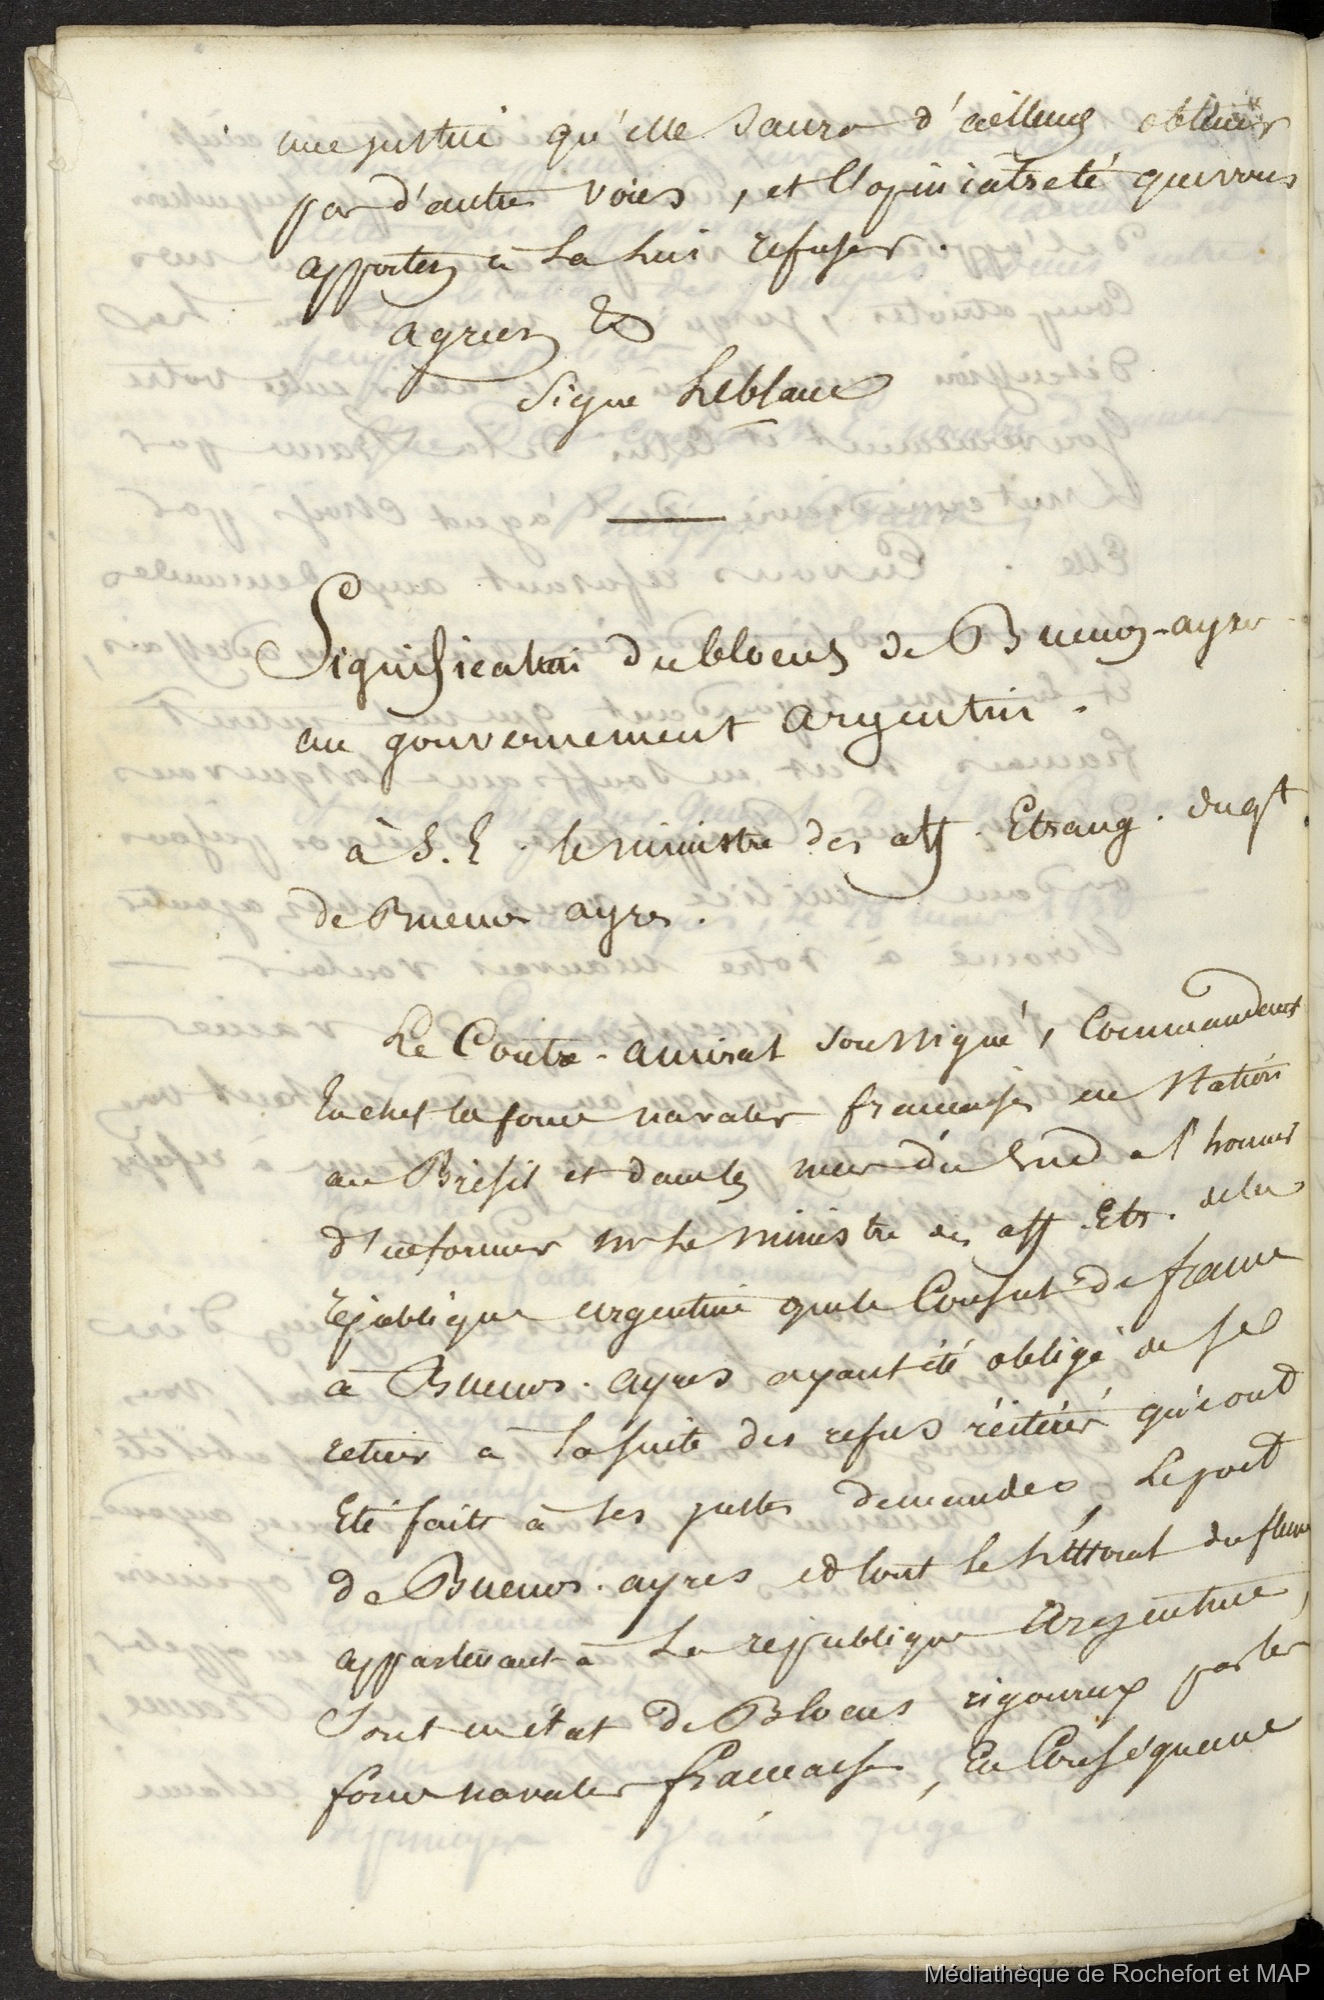 une justice qu'elle saura d'ailleurs obtenir
par d'autre voies, et l'opiniatreté que vous
apportez à la lui refuser.
agreez &
Signé Leblanc
Signification du blocus de Buenos-ayres
au gouvernement argentin.
à S. E. le ministre des aff. Etrang. du gt
de Buenos ayres.
Le Contre-amiral soussigné, Commandant
En chef les forces navales françaises en Station
au Brésil et dans les mers du Sud a l'honneur
d'informer Mr le Ministre des aff. Etr. de la
république argentine que le Consul de france
à Buenos-ayres ayant été obligé de se
retirer à la suite des refus réitérés qui ont
Eté faits à ses justes demandes, Le port
de Buenos-ayres et tout le littoral du fleuve
appartenant à La république Argentine,
Sont en état de Blocus rigoureux par les
forces navales françaises, En Conséquence
Médiathèque de Rochefort et MAP